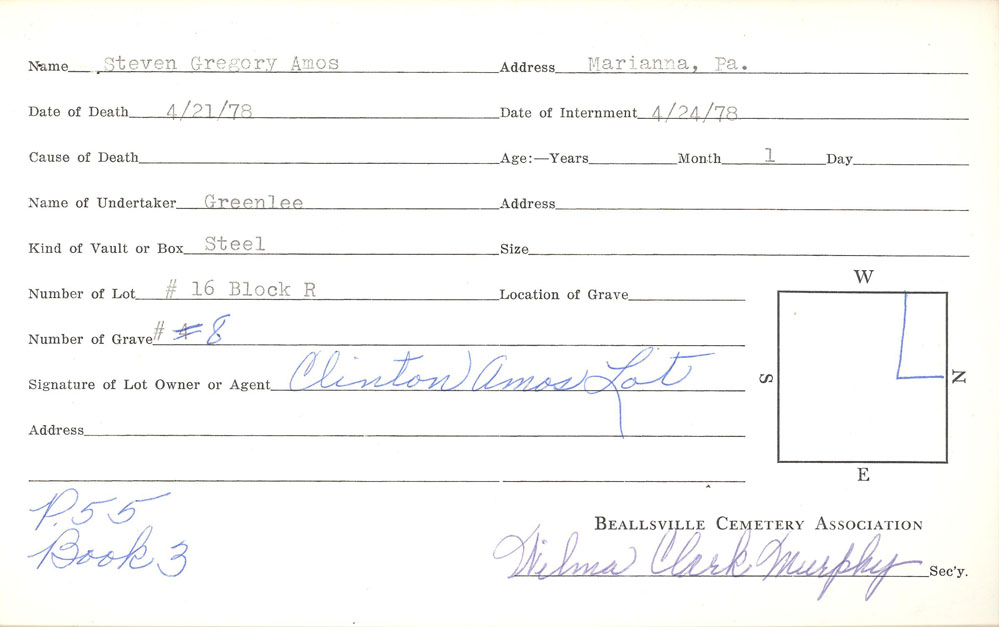 Name Steven Gregory Amos Address Marianna, Pa.
Date of Death 4/21/78 Date of Internment 4/24/78
Cause of Death Age:—Years Month 1 Day
Name of Undertaker Greenlee Address
Kind of Vault or Box Steel Size
Number of Lot # 16 Block R Location of Grave
Number of Grave # 8
Signature of Lot Owner or Agent Clinton Amos Lot
Address
W
S
N
E
P. 55
Book 3
BEALLSVILLE CEMETERY ASSOCIATION
Wilma Clark Murphy Sec'y.